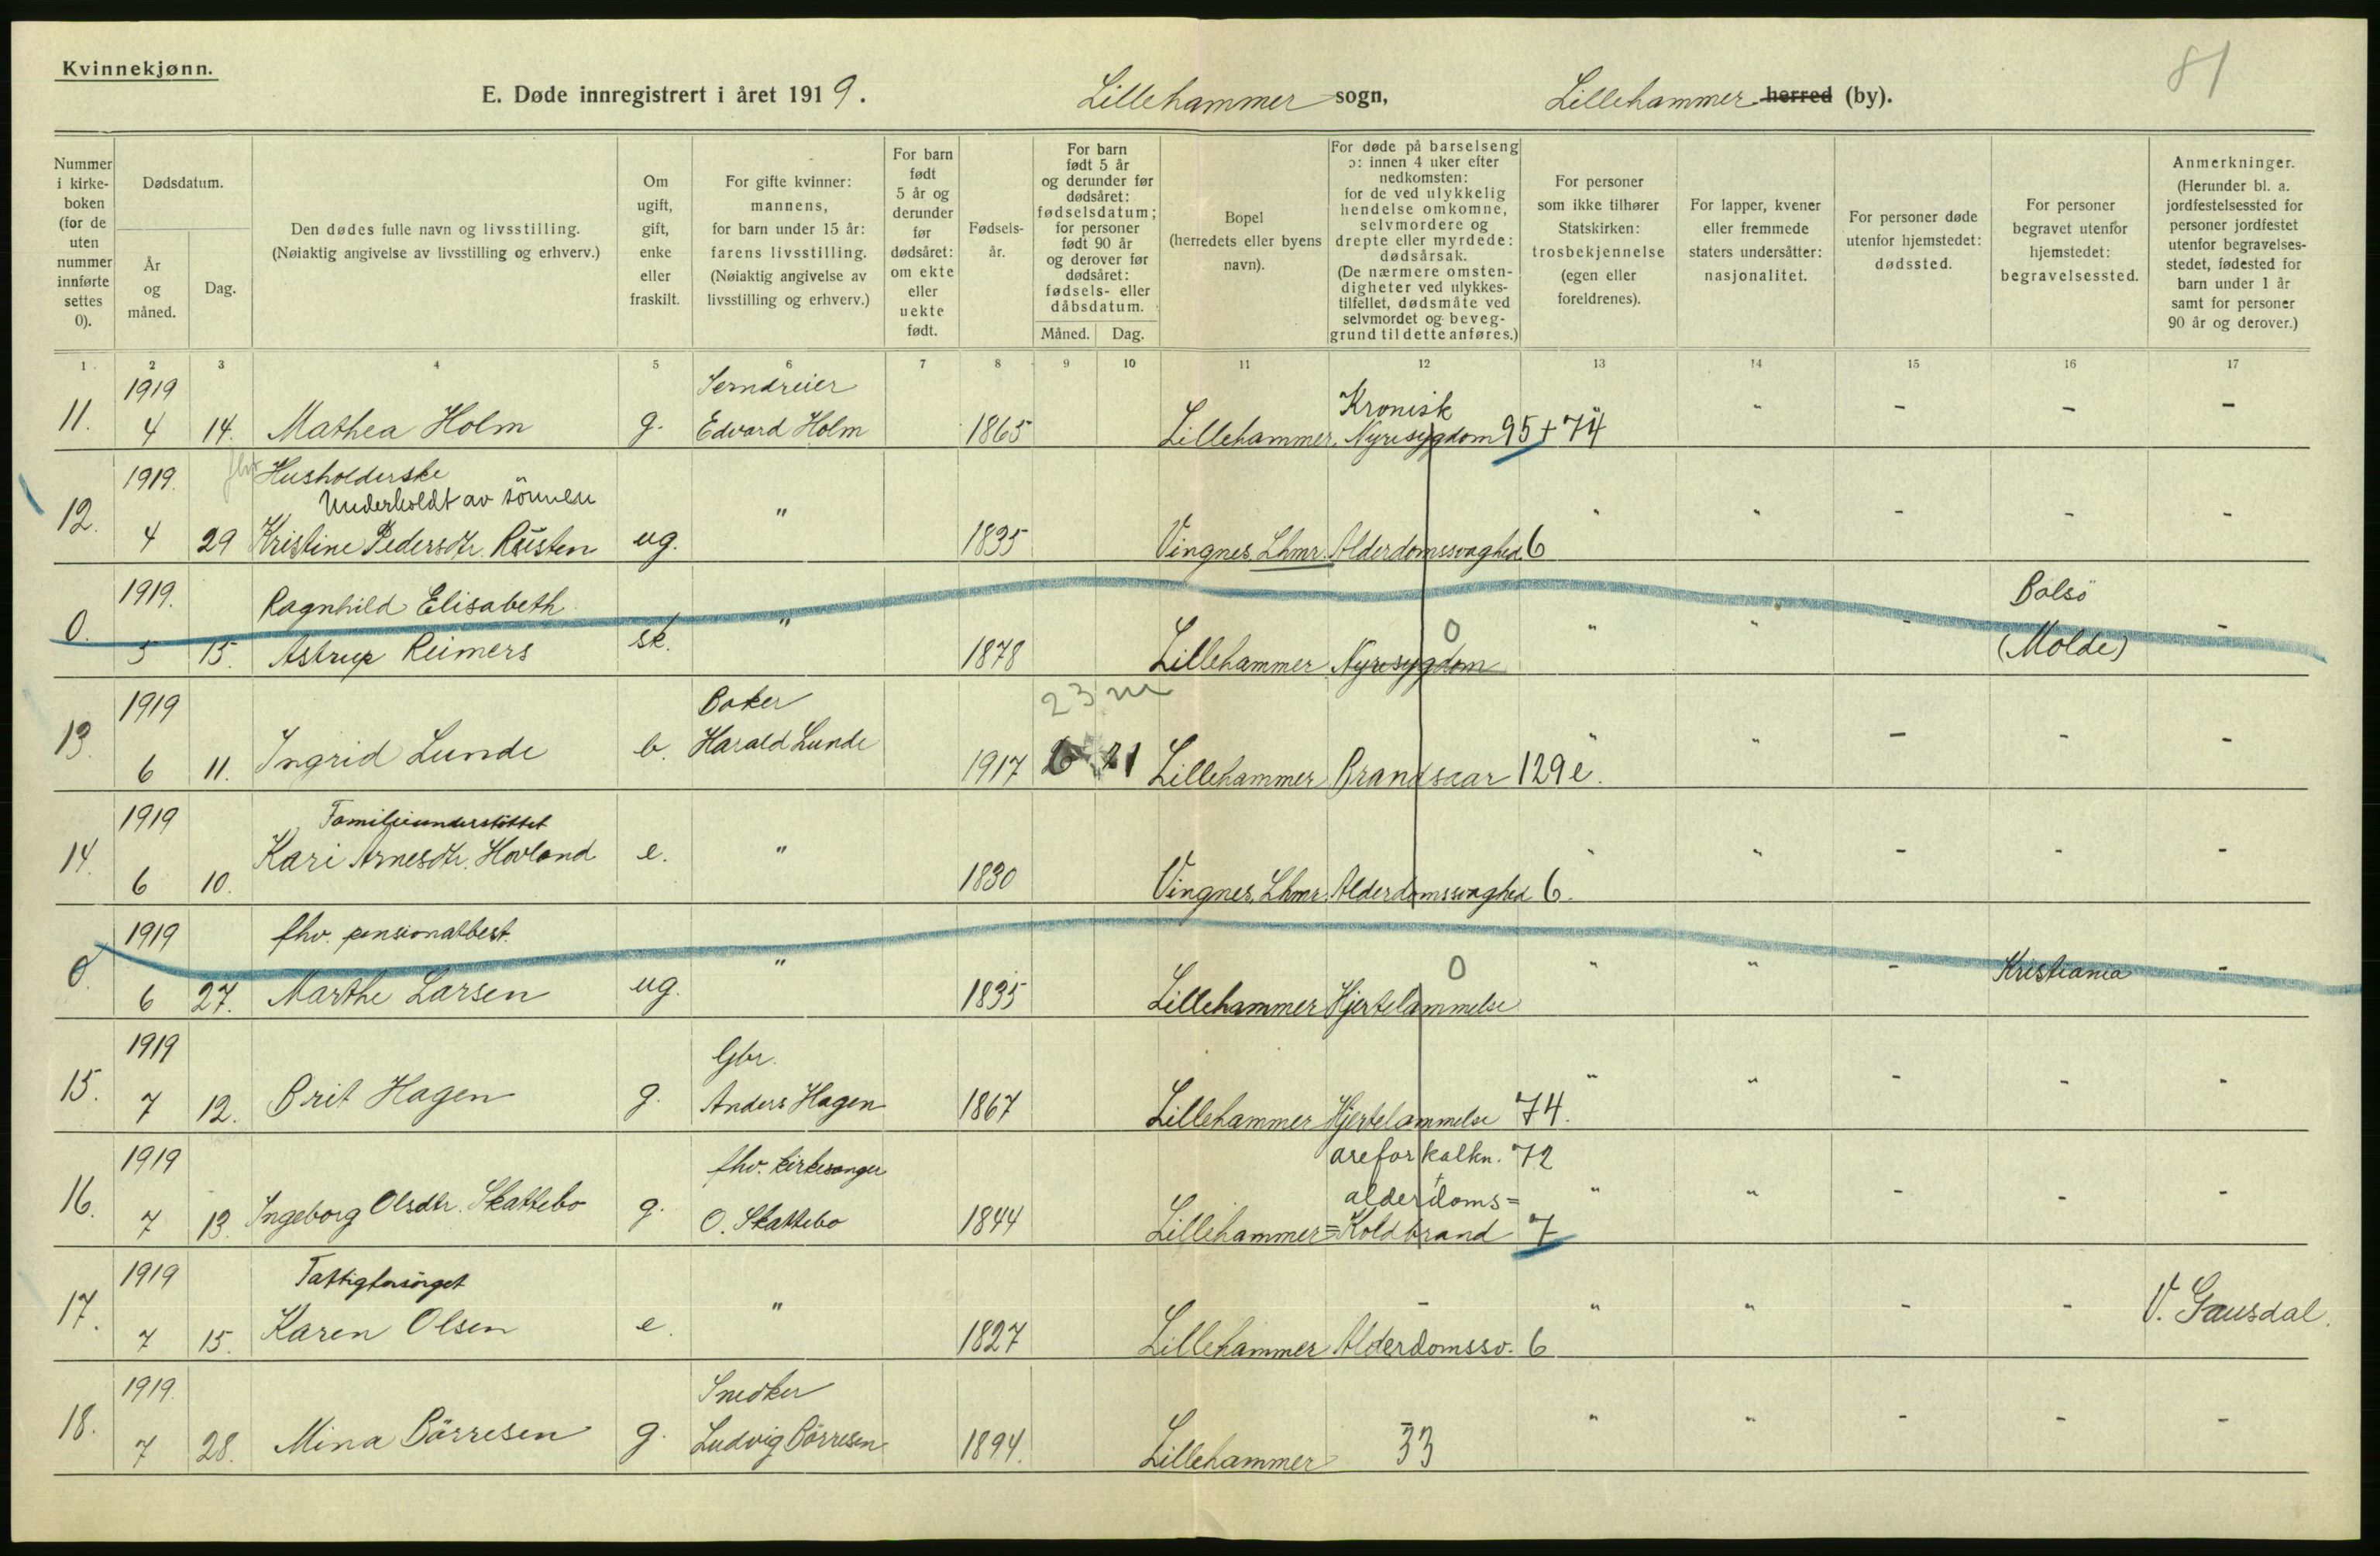 Kvinnekjønn.
81
E. Døde innregistrert i året 1919. Lillehammer sogn, Lillehammer herred (by).
Nummer i kirke-boken (for de uten nummer innførte settes 0).
Dødsdatum.
År og måned.
Dag.
Den dødes fulle navn og livsstilling.
(Nøiaktig angivelse av livsstilling og erhverv.)
Om ugift, gift, enke eller fraskilt.
For gifte kvinner: mannens, for barn under 15 år: farens livsstilling. (Nøiaktig angivelse av livsstilling og erhverv.)
For barn født 5 år og derunder før dødsåret: om ekte eller uekte født.
Fødsels-år.
For barn født 5 år og derunder før dødsåret: fødselsdatum; for personer født 90 år og derover før dødsåret: fødsels- eller dåbsdatum.
Måned. Dag.
Bopel (herredets eller byens navn).
For døde på barselseng ɔ: innen 4 uker efter nedkomsten: for de ved ulykkelig hendelse omkomne, selvmordere og drepte eller myrdede: dødsårsak. (De nærmere omsten-digheter ved ulykkes-tilfellet, dødsmåte ved selvmordet og beveg-grund til dette anføres.)
For personer som ikke tilhører Statskirken: trosbekjennelse (egen eller foreldrenes).
For lapper, kvener eller fremmede staters undersåtter: nasjonalitet.
For personer døde utenfor hjemstedet: dødssted.
For personer begravet utenfor hjemstedet: begravelsessted.
Anmerkninger. (Herunder bl. a. jordfestelsessted for personer jordfestet utenfor begravelses-stedet, fødested for barn under 1 år samt for personer 90 år og derover.)
1 2 3 4 5 6 7 8 9 10 11 12 13 14 15 16 17
1919 Jerndreier Kronisk
11. 4 14. Mathea Holm g. Edvard Holm 1865 Lillehammer. Nyresygdom 95 + 74 " " - - -
1919. fhv. Husholderske
Underholdt av sönnen
12. 4 29 Kristine Pedersdtr. Rusten ug. " 1835 Vingnes, Lhmr. Alderdomssvaghed 6 " " - - -
1919. Ragnhild Elisabeth Bolsö
0. 5 15. Astrup Reimers sk. " 1878 Lillehammer Nyresygdom 0 " " - (Molde) -
1919 Baker 23 m
13. 6 11. Ingrid Lunde b. Harald Lunde 1917 6 21 Lillehammer Brandsaar 129 e. " " - - -
1919 Familieunderstöttet
14. 6 10. Kari Arnesdtr. Hovland e. " 1830 Vingnes, Lhmr. Alderdomssvaghed 6. " " - - -
1919 fhv. pensionatbest.
0. 6 27. Marthe Larsen ug. " 1835 Lillehammer Hjertelammelse 0 " " - Kristiania -
1919 Gbr.
15. 7 12. Brit Hagen g. Anders Hagen 1867 Lillehammer Hjertelammelse 74. " " - - -
1919 fhv. kirkesanger areforkalkn. 72
+ alderdoms=
16. 7 13. Ingeborg Olsdtr. Skattebo g. O. Skattebo 1844 Lillehammer =Koldbrand 7 " " - - -
1919 Fattigforsörget
17. 7 15. Karen Olsen e. " 1827 Lillehammer Alderdomssv. 6 " " - - V. Gausdal.
1919. Snedker
18. 7 28. Mina Börresen g. Ludvig Börresen 1894. Lillehammer 33 " " - - -